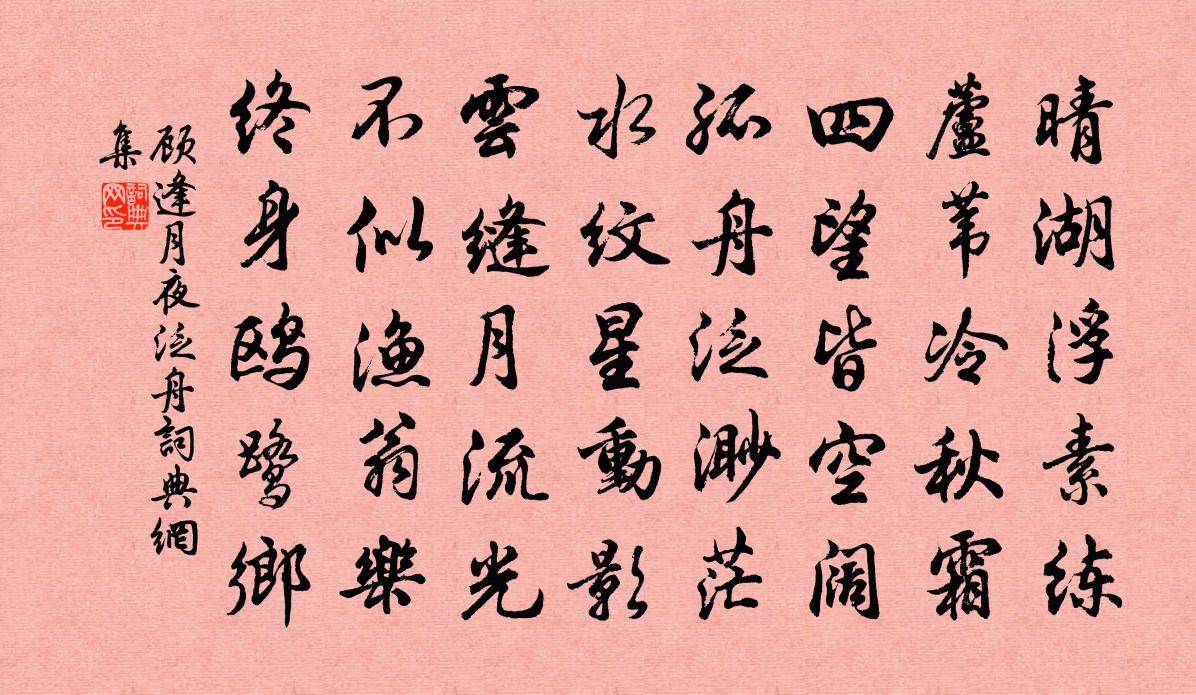 晴湖浮素练
蘆苇冷秋霜
四望皆空阔
孤舟泛渺茫
水纹星動影
雲缝月流光
不似渔翁樂
终身鸥鹭鄉
顾逢月夜泛舟詞典網
集
詞典网印